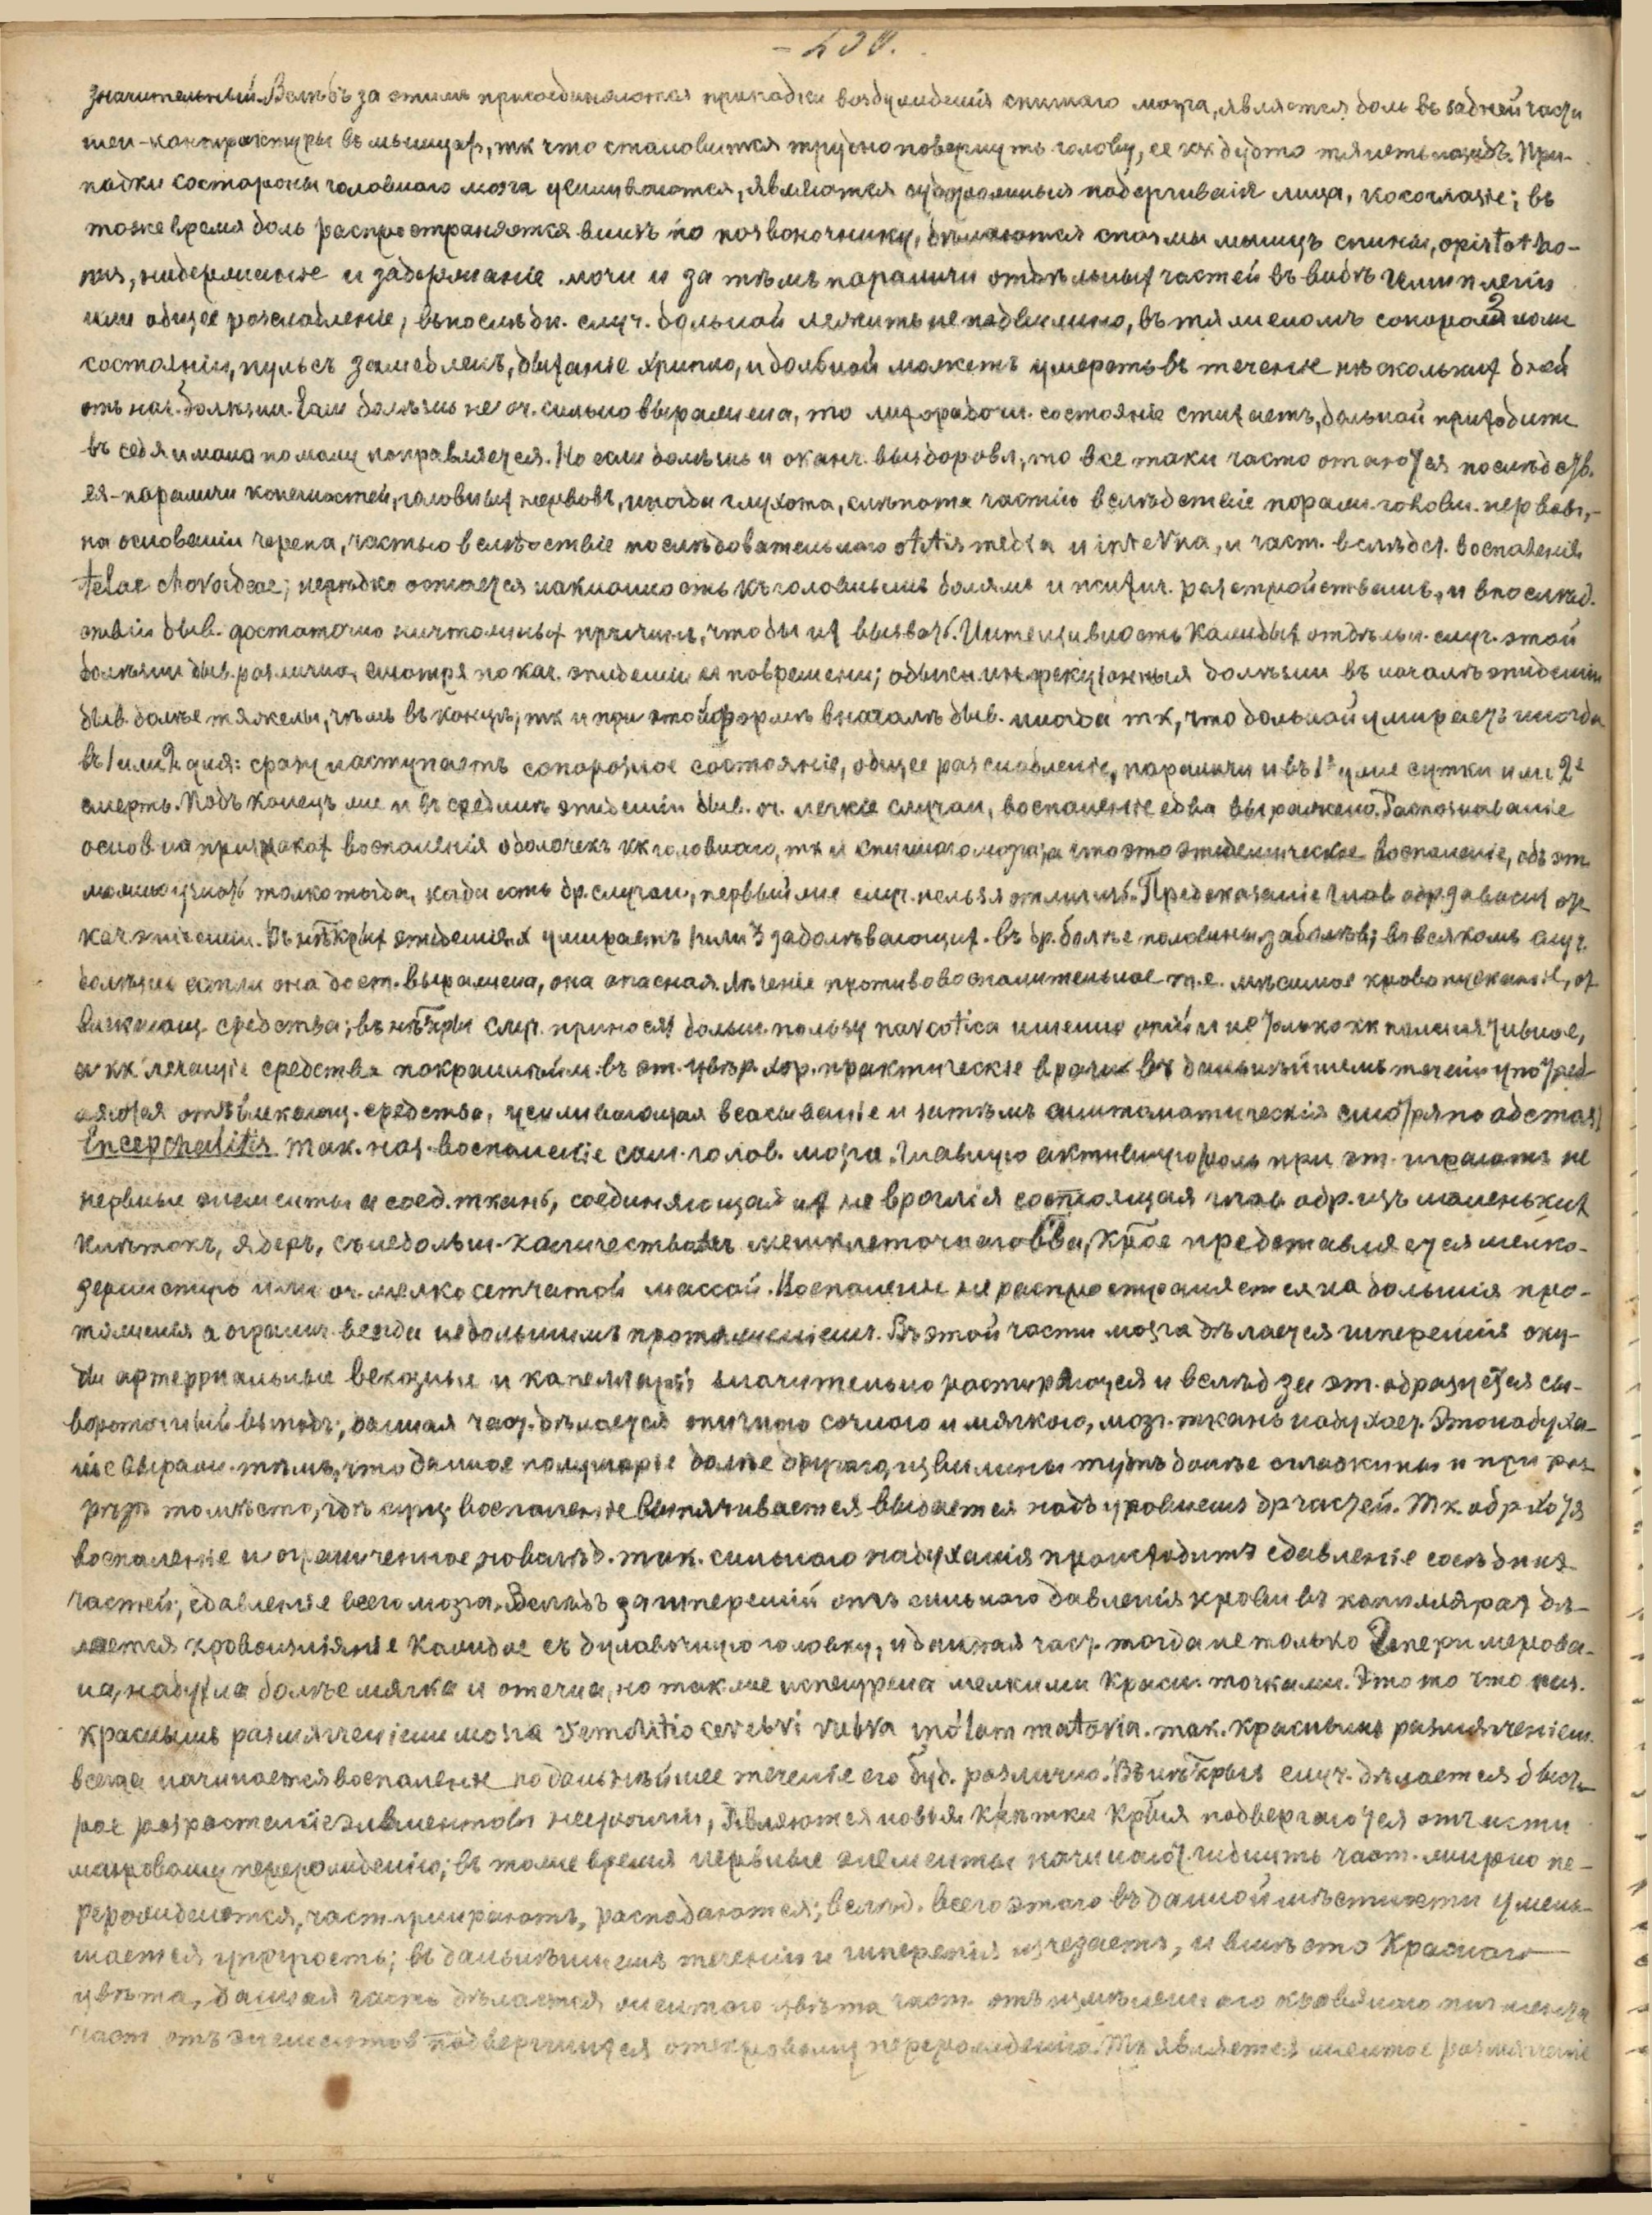 значительный. Вслѣдъ за этимъ присоединяются припадки возбужденія спинного мозга, является боль въ задней части
шеи - контрактуры въ мышцах, тк что становится трудно повернуть голову, ее кк будто тянетъ назадъ. При-
падки со стороны головного мозга усиливаются, являются судорожныя подергиванія лица, косоглазіе; въ
тоже время боль распространяется внизъ по позвоночнику, дѣлаются спазмы мышцъ спины, opistotho-
nus, недержаніе и задержаніе мочи и за тѣмъ параличи отдѣльных частей въ видѣ гемиплегіи
или общее разслабленіе; въ послѣдн. случ. больной лежитъ неподвижно, въ тяжеломъ сопорозном
состояніи, пульсъ замедленъ, дыханіе хрипло, и больной можетъ умереть въ теченіе нѣскольких дней
отъ нач. болѣзни. Если болѣзнь не оч. сильно выражена, то лихорадочн. состояніе стихаетъ, больной приходитъ
въ себя и мало по малу поправляется. Но если болѣзнь и оканч. выздоровл., то все таки часто остаются послѣдств.
ея - параличи конечностей, головных нервовъ, иногда глухота, слѣпота частію вслѣдствіе парали. головн. нервовъ, -
на основаніи черепа, частью вслѣдствіе послѣдовательного otitis media и interna, и част. вслѣдст. воспаленія
telae choroideae; нерѣдко остается наклонность къ головнымъ болямъ и психич. разстройствамъ, и впослѣд-
ствіи быв. достаточно ничтожных причинъ, чтобы их вызвать. Интенсивность каждых отдѣльн. случ. этой
болѣзни быв. различна, смотря по кач. эпидеміи и по времени; обыкн. инфекціонныя болѣзни въ началѣ эпидеміи
быв. болѣе тяжелы, чѣмъ въ концѣ; тк и при этой формѣ вначалѣ быв. иногда тк, что больной умираетъ иногда
въ 1 или 2 дня: сразу наступаетъ сопорозное состояніе, общее разслабленіе, параличи и въ 1е уже сутки или 2е
смерть. Подъ конецъ же и въ срединѣ эпидеміи быв. оч. легкіе случаи, воспаленіе едва выражено. Распознаваніе
основ. на признаках воспаленія оболочекъ кк головного, тк и спинного мозга, а что это эпидемическое воспаленіе, объ эт.
можно узнать только тогда, когда есть др. случаи, первый же случ. нельзя отличить. Предсказаніе глав. обр. зависит от
кач. эпидеміи. Въ нѣкрых эпидеміях умираетъ 1/3 заболѣвающих. въ др. болѣе половины заболѣв; во всякомъ случ.
болѣзнь если она дост. выражена, она опасная. Лѣченіе противовоспалительное т. е. мѣстное кровопусканіе, от
влекающ. средства; въ нѣкрых случ. приносят больш. пользу narcotica именно опій и не только кк палліативное,
а кк лечащіе средства по крайнѣй м. въ эт. увѣр. хор. практическіе врачи въ дальнѣйшемъ теченіи употреб-
ляются отвлекающ. средства, усиливающая всасываніе и затѣмъ симптоматическія смотря по обстоят.
Encephalitis. Так. наз. воспаленіе сам. голов. мозга. Главную активную роль при эт. играютъ не
нервные элементы а соед. ткань, соединяющая их невроглія состоящая глав. обр. изъ маленьких
клѣтокъ, ядеръ, съ небольш. количествомъ межклеточного в-ва, ктрое представляется мелко-
зернистую или оч. мелко сетчатой массой. Воспаленіе не распространяется на большія про-
тяженія а огранич. всегда небольшимъ протяженіем. Въ этой части мозга дѣлается гиперемія сосу-
ды артерріальные венозные и капелляры значительно расширяются и вслѣд за эт. образуется сы-
вороточный выпотъ; данная част. дѣлается отечного сочного и мягкого, мозг. ткань набухает. Это набуха-
ніе выраж. тѣмъ, что данное полушаріе болѣе другого, извилины тутъ болѣе сглажены и при раз-
рѣзѣ то мѣсто, гдѣ сущ. воспаленіе выпячивается выдается надъ уровнемъ др частей. Тк. обр. хотя
воспаленіе и ограниченное, но вслѣд. так. сильного набуханія происходитъ сдавленіе сосѣдних
частей, сдавленіе всего мозга. Вслѣдъ за гипереміей отъ сильного давленія крови въ капиллярах дѣ-
лается кровоизліяніе каждое съ булавочную головку, и данная част. тогда не только гиперимирова-
на, набухла болѣе мягка и отечна, но также испещрена мелкими красн. точками. Это то что наз.
краснымъ размягченіем мозга remolitio cerebri rubra inflammatoria. так. краснымъ размягченіем.
всегда начинается воспаленіе но дальнѣйшее теченіе его буд. различно. Въ нѣкрых случ. дѣлается быст-
рое разростаніе элементовъ невроглии, являются новыя клѣтки ктрыя подвергаются отчасти
жировому перерожденію; въ тоже время нервные элементы начинают гибнуть част. жирно пе-
рерождаются, част. умирают, распадаются; вслѣд. всего этого въ данной мѣстности умень-
шается упругость; въ дальнѣйшемъ теченіи и гиперемія изчезаетъ, и вмѣсто красного
цвѣта, данная часть дѣлается желтого цвѣта част. отъ измѣненного кровяного пигмента
част отъ элементов подвергшихся жировому перерожденію. Тк является желтое размягченіе